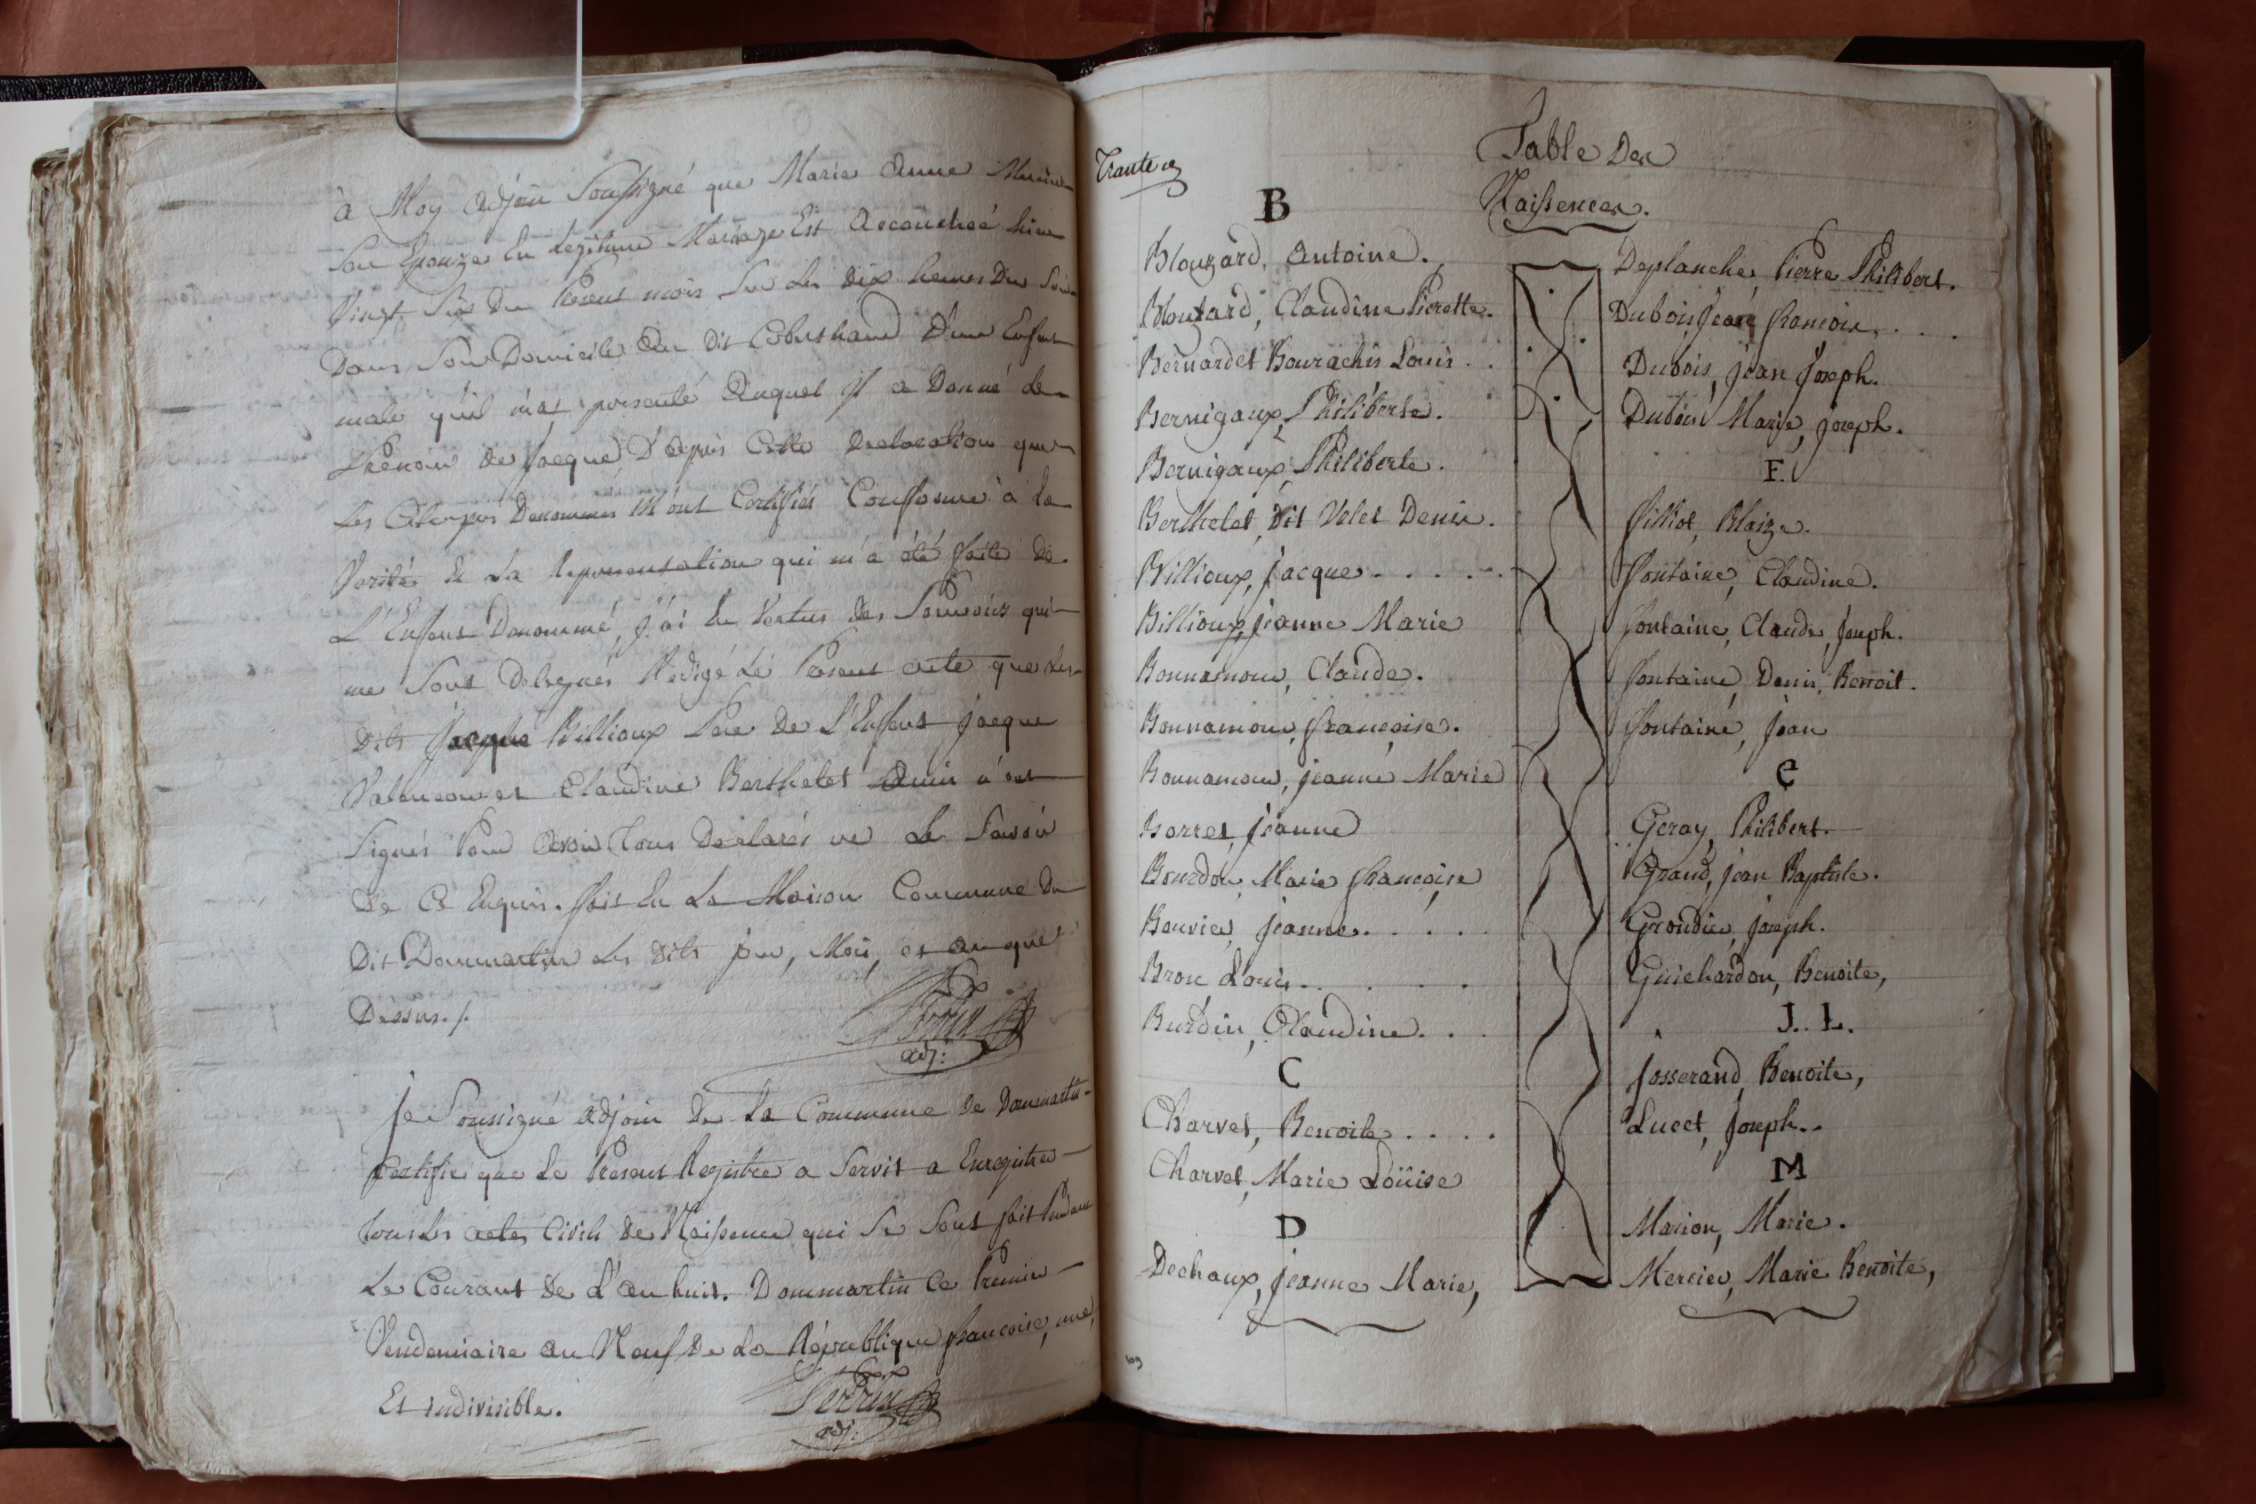 à Moy adjoin Soussigné que Marie Anne
Son Epouze En Legitime Mariage Est Accouchée hier
Vingt Six Du Present mois Sur Les Dix heures Du Soir
Dans Son Domicile Au Dit D'un Enfant
male qu'il m'as presenté Auquel il a Donné Le
Prenom De Jacque D'apres Cette Declaration que
Les Cytoyens Denommés M'ont Certifiés Conforme à la
Verité & La Representation qui m'a été faite de
L'Enfant Denommé, j'ai En Vertus des Pouvoirs qui
me Sont Delegués Redigé Le Present acte que Les
Dits Jacque Billioux Pere De L'Enfant Jacque
et Claudine Berthelet Amis n'ont
Signés Pour Avoir Tous Declarés ne Le Savoir
De Ce Enquis. fait En La Maison Commune Du
Dit Dommartin Les Dits jour, Mois, et an que
Dessus./.
Perrin
adj:
Je Soussigné adjoin De La Commune de Dommartin
Certifie que Le Present Registre a Servit a Enregistrer
tous Les actes Civils De Naissence qui Se Sont fait Pendant
Le Courant de L'an huit. Dommartin Ce Premier
Vendemiaire an Neuf De La Republique francoise, une,
Et indivisible.
Perrin
adj:
Table Des
Naissences.
B
Blouzard, Antoine.
Blouzard, Claudine Pierette.
Bernardet Bourachis Louis . .
Bernigaux, Philiberte.
Bernigaux, Philiberte.
Berthelet, Dit Velet Denis.
Billioux, Jacque . . . . .
Billioux, Jeanne Marie
Bonnamour, Claude.
Bonnamour, françoise.
Bonnamour, Jeanne Marie
Borret, Jeanne
Bourdon, Marie françoise
Bouvier, Jeanne . . . . .
Bron Louis . . . .
Burdin, Claudine . . .
C
Charvet, Benoite . . . .
Charvet, Marie Loüise
D
Dechaux, Jeanne Marie,
Deplanche, Pierre Philibert.
Dubois, Jean francois . . . .
Dubois, Jean Joseph.
Dubois Marie, Joseph.
F.
filliot, Blaize.
fontaine, Claudine.
fontaine, Claude, Joseph.
fontaine, Denis, Benoit.
fontaine, Jean
G
Geray, Philibert.
Grand, Jean Baptiste.
Grondier, Joseph.
Guichardon, Benoite,
J. L.
Josserand, Benoite,
Lucet, Joseph..
M
Marion, Marie.
Mercier, Marie Benoite,